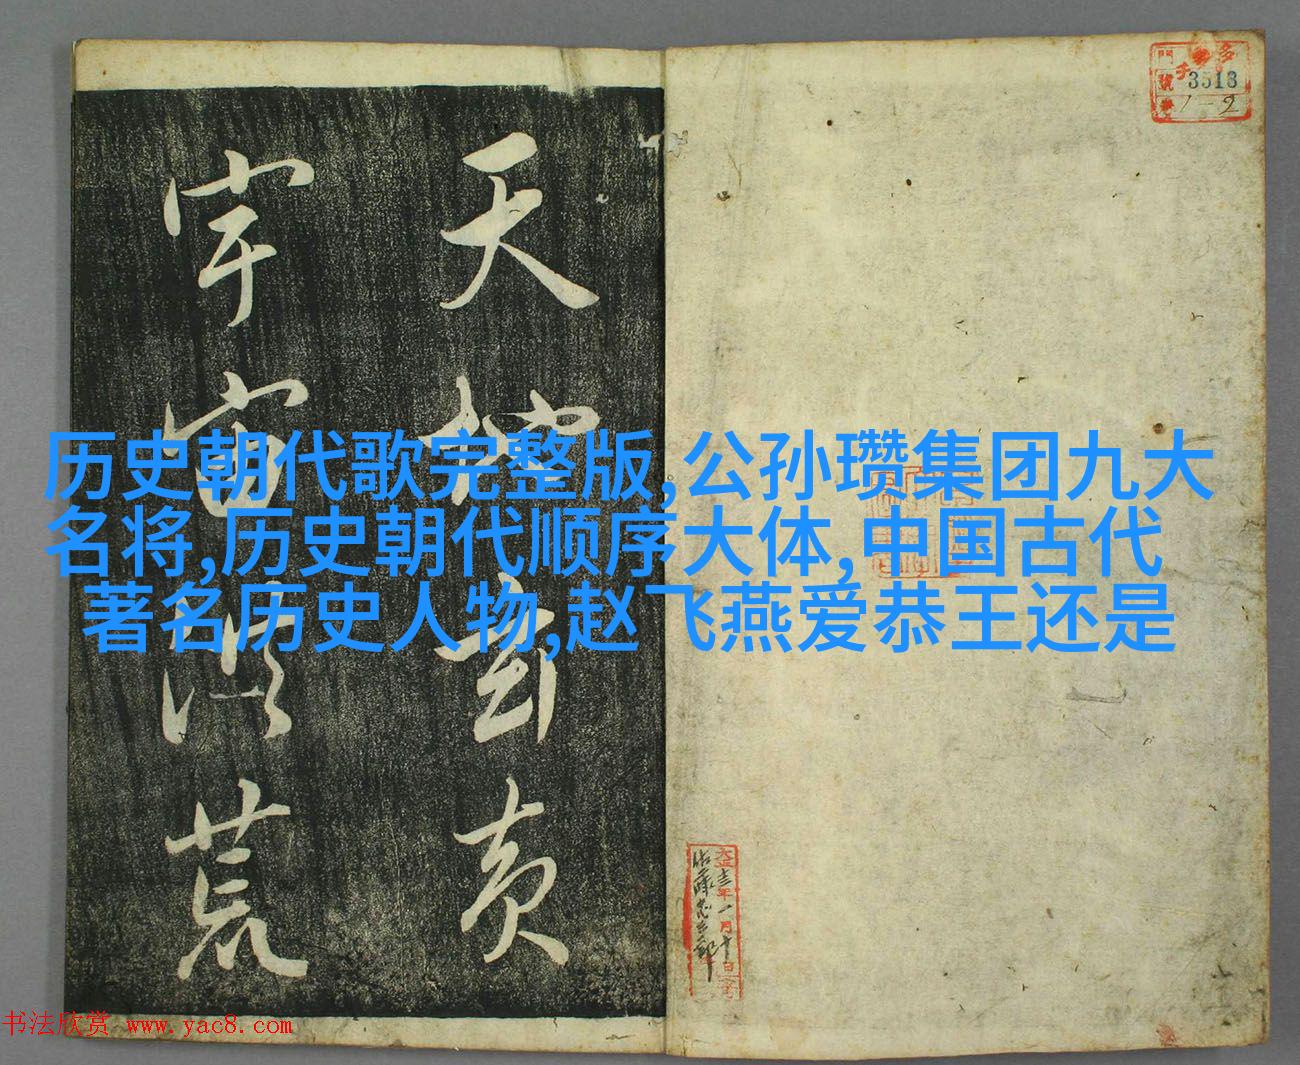 天地玄黄
宇宙洪荒
3513
1-2
历史朝代歌完整版,公孙瓒集团九大
名将,历史朝代顺序大体,中国古代
著名历史人物,赵飞燕爱恭王还是
书法欣赏 www.yac8.com